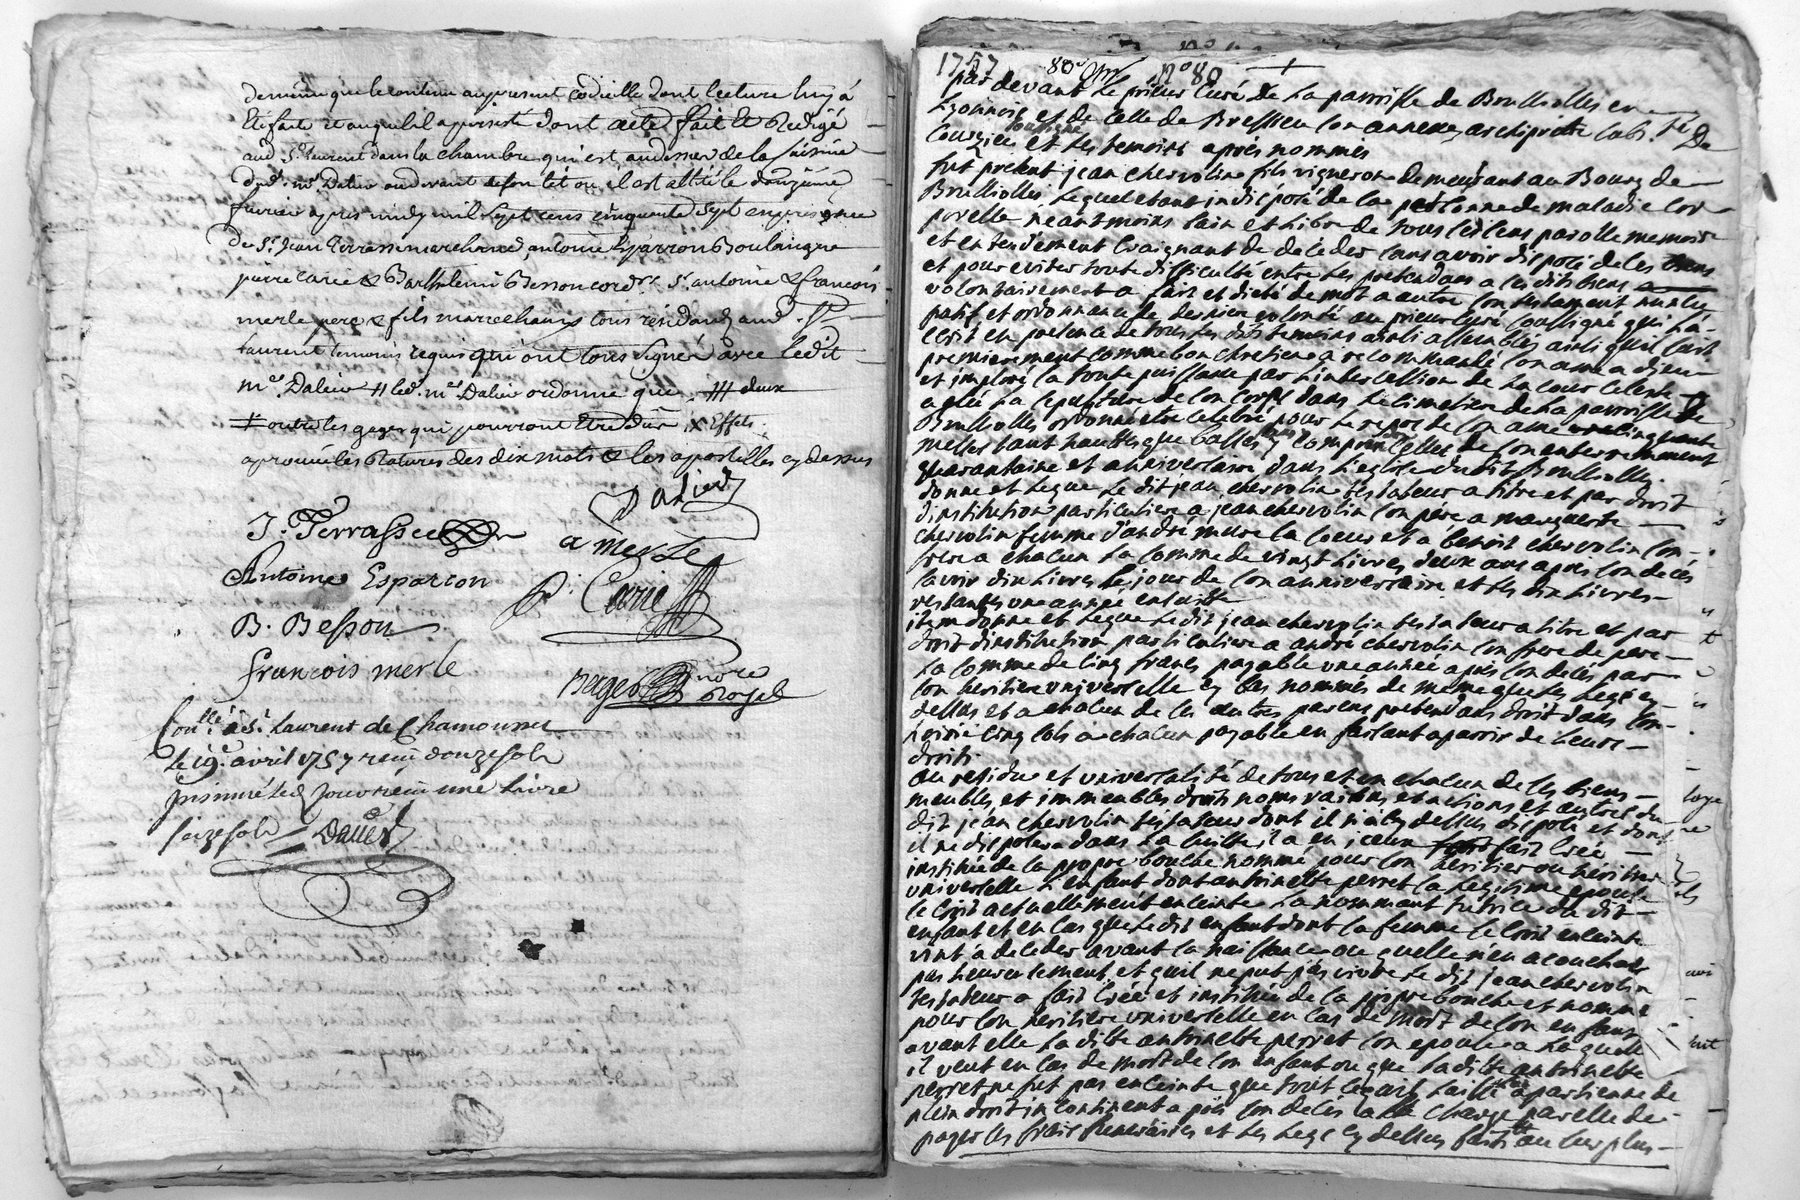 de meme que le contenu au present codicille dont lecture luy à
Eté faite et auquel il a persisté dont acte fait Et Redigé
aud. St. Laurent dans la chambre qui est au dessus de la Cuisine
dud. mre. Dalier au devant de son lit ou il est allité le douzieme
fevrier apres midy mil sept cens cinquante sept en presence
de Sr. Jean Terrasse marchand, antoine Esparron Boulanger
pierre Carie & Barthelemi Besson cordrs. Sr. antoine & francois
merle pere & fils marechaux tous residants aud. St.
Laurent temoins requis qui ont tous signé avec ledit
mre. Dalier # led. mre. Dalier ordonne que # deux
# outre les gages qui pourront Etre dûs × Effets
aprouvé les Ratures des dix mots & les apostilles cy dessus
Dalier
J. Terrasse
a merle
Antoine Esparron
P. Carie
B. Besson
francois merle
Berger nore Royal
Conllé. à St. Laurent de Chamousset
Le 19e. avril 1757 reçu douze sols
Insinué led. jour reçu une Livre
seize sols Daver
1757 80e N° 80 +
par devant le prieur Curé de La parroisse de Brulliolles en
Lyonnois et de celle de Bressieu son annexe, archiprêtré
Courzieu soussigné et les temoins apres nommés
fut present jean chervolin fils vigneron demeurant au Bourg de
Brulliolles, Lequel etant indisposé de sa personne de maladie cor
porelle neantmoins sain et libre de tous ses sens parolle memoire
et entendement craignant de deceder sans avoir disposé de ses biens
et pour eviter toute difficulté entre les pretendans a ses dits biens a
volontairement a fait et dicté de mot a autre son testament nuncu
patif et ordonnance de derniere volonté au prieur Curé soussigné qui l'a
ecrit en presence de tous les dits temoins ainsi assemblés ainsi qu'il suit
premierement comme bon chretien a recommandé son ame a dieu
et imploré la toute puissance par l'intercession de La cour celeste
a elû La sepulture de son corps dans Le cimetiere de La parroisse de
Brulliolles ordonne etre celebré pour le repos de son ame cinquante
messes tant hautes que basses y compris celles de son enterrement
quarantaine et anniversaire dans L'eglise dudit Brulliolles.
donne et legue Le dit jean chervolin testateur a titre et par droit
d'institution particuliere a jean chervolin son pere a marguerite
chervolin femme d'andré mure sa soeur et a benoit chervolin son
frere a chacun La somme de vingt Livres deux ans apres son decés
savoir dix Livres Le jour de son anniversaire et les dix Livres
restantes une année ensuitte
item donne et legue Le dit jean chervolin testateur a titre et par
droit d'institution particuliere a andré chervolin son frere de pere
La somme de cinq francs payable une année après son decés par
son heritiere universelle cy bas nommés de meme que les legs cy
dessus et a chacun de ses autres parens pretendans droit dans son
hoirie cinq sols a chacun payable en faisant aparoir de leurs
droits
au residu et universalité de tous et un chacun de ses biens
meubles et immeubles droits noms raisons et actions et autres du
dit jean chervolin testateur dont il n'a cy dessus disposé et dont
il ne disposera dans La suitte, il a en iceux fait Créé
institué de sa propre bouche nommé pour son heritier ou heritiere
universelle L'enfant dont antoinette perret sa Legitime epouse
se croit actuellement enceinte La nommant tutrice du dit
enfant et en cas que Le dit enfant dont sa femme se croit enceinte
vint à deceder avant sa naissance ou quelle n'en acouchat
pas heureusement, et quil ne put pas vivre Le dit jean chervolin
testateur a fait Créé et institué de sa propre bouche et nommé
pour son heritiere universelle en cas de mort de son enfant
avant elle La ditte antoinette perret son epouse a Laquelle
il veut en cas de mort de son enfant ou que La ditte antoinette
perret ne fut pas enceinte que tout ce qu'il laisse apartienne de
plein droit incontinent apres son decés a la charge par elle de
payer les frais funeraires et Les Legs cy dessus faits au surplus